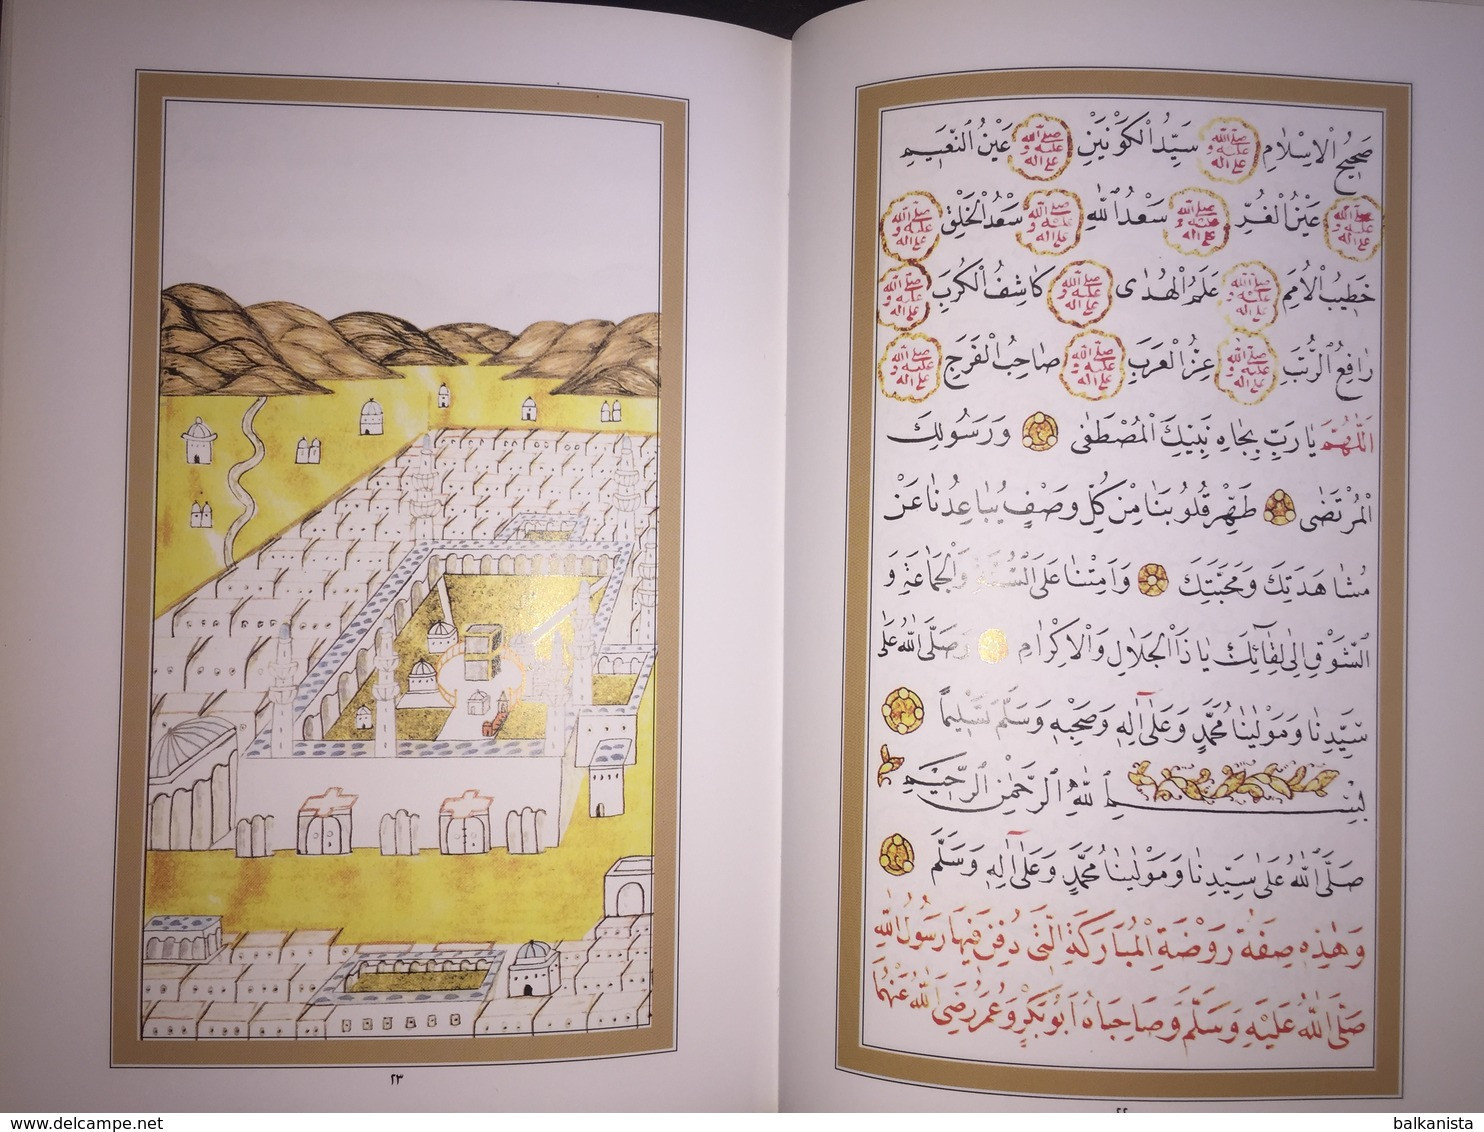 صَحِيحُ الْاِسْلَامِ صلى الله عليه و على اله سَيِّدُ الْكَوْنَيْنِ صلى الله عليه و على اله عَيْنُ النَّعِيمِ
صلى الله عليه و على اله عَيْنُ الْغُرِّ صلى الله عليه و على اله سَعْدُ اللهِ صلى الله عليه و على اله سَعْدُ الْخَلْقِ صلى الله عليه و على اله
خَطِيبُ الْاُمَمِ صلى الله عليه و على اله عَلَمُ الْهُدٰى صلى الله عليه و على اله كَاشِفُ الْكُرَبِ صلى الله عليه و على اله
رَافِعُ الرُّتَبِ صلى الله عليه و على اله عِزُّ الْعَرَبِ صلى الله عليه و على اله صَاحِبُ الْفَرَجِ صلى الله عليه و على اله
اَللّٰهُمَّ يَا رَبِّ بِجَاهِ نَبِيِّكَ الْمُصْطَفٰى وَرَسُولِكَ
الْمُرْتَضٰى طَهِّرْ قُلُوبَنَا مِنْ كُلِّ وَصْفٍ يُبَاعِدُنَا عَنْ
مُشَاهَدَتِكَ وَمَحَبَّتِكَ وَاَمِتْنَا عَلَى السُّنَّةِ وَالْجَمَاعَةِ وَ
الشَّوْقِ اِلٰى لِقَائِكَ يَا ذَا الْجَلَالِ وَالْاِكْرَامِ وَصَلَّى اللهُ عَلٰى
سَيِّدِنَا وَمَوْلٰينَا مُحَمَّدٍ وَعَلٰى اٰلِهِ وَصَحْبِهِ وَسَلَّمَ تَسْلِيمًا
بِسْمِ اللهِ الرَّحْمٰنِ الرَّحِيمِ
صَلَّى اللهُ عَلٰى سَيِّدِنَا وَمَوْلٰينَا مُحَمَّدٍ وَعَلٰى اٰلِهِ وَسَلَّمَ
وَهٰذِهِ صِفَةُ رَوْضَةِ الْمُبَارَكَةِ الَّتِى دُفِنَ فِيهَا رَسُولُ اللهِ
صَلَّى اللهُ عَلَيْهِ وَسَلَّمَ وَصَاحِبَاهُ اَبُو بَكْرٍ وَعُمَرُ رَضِىَ اللهُ عَنْهُمَا
٢٢
٢٣
balkanista